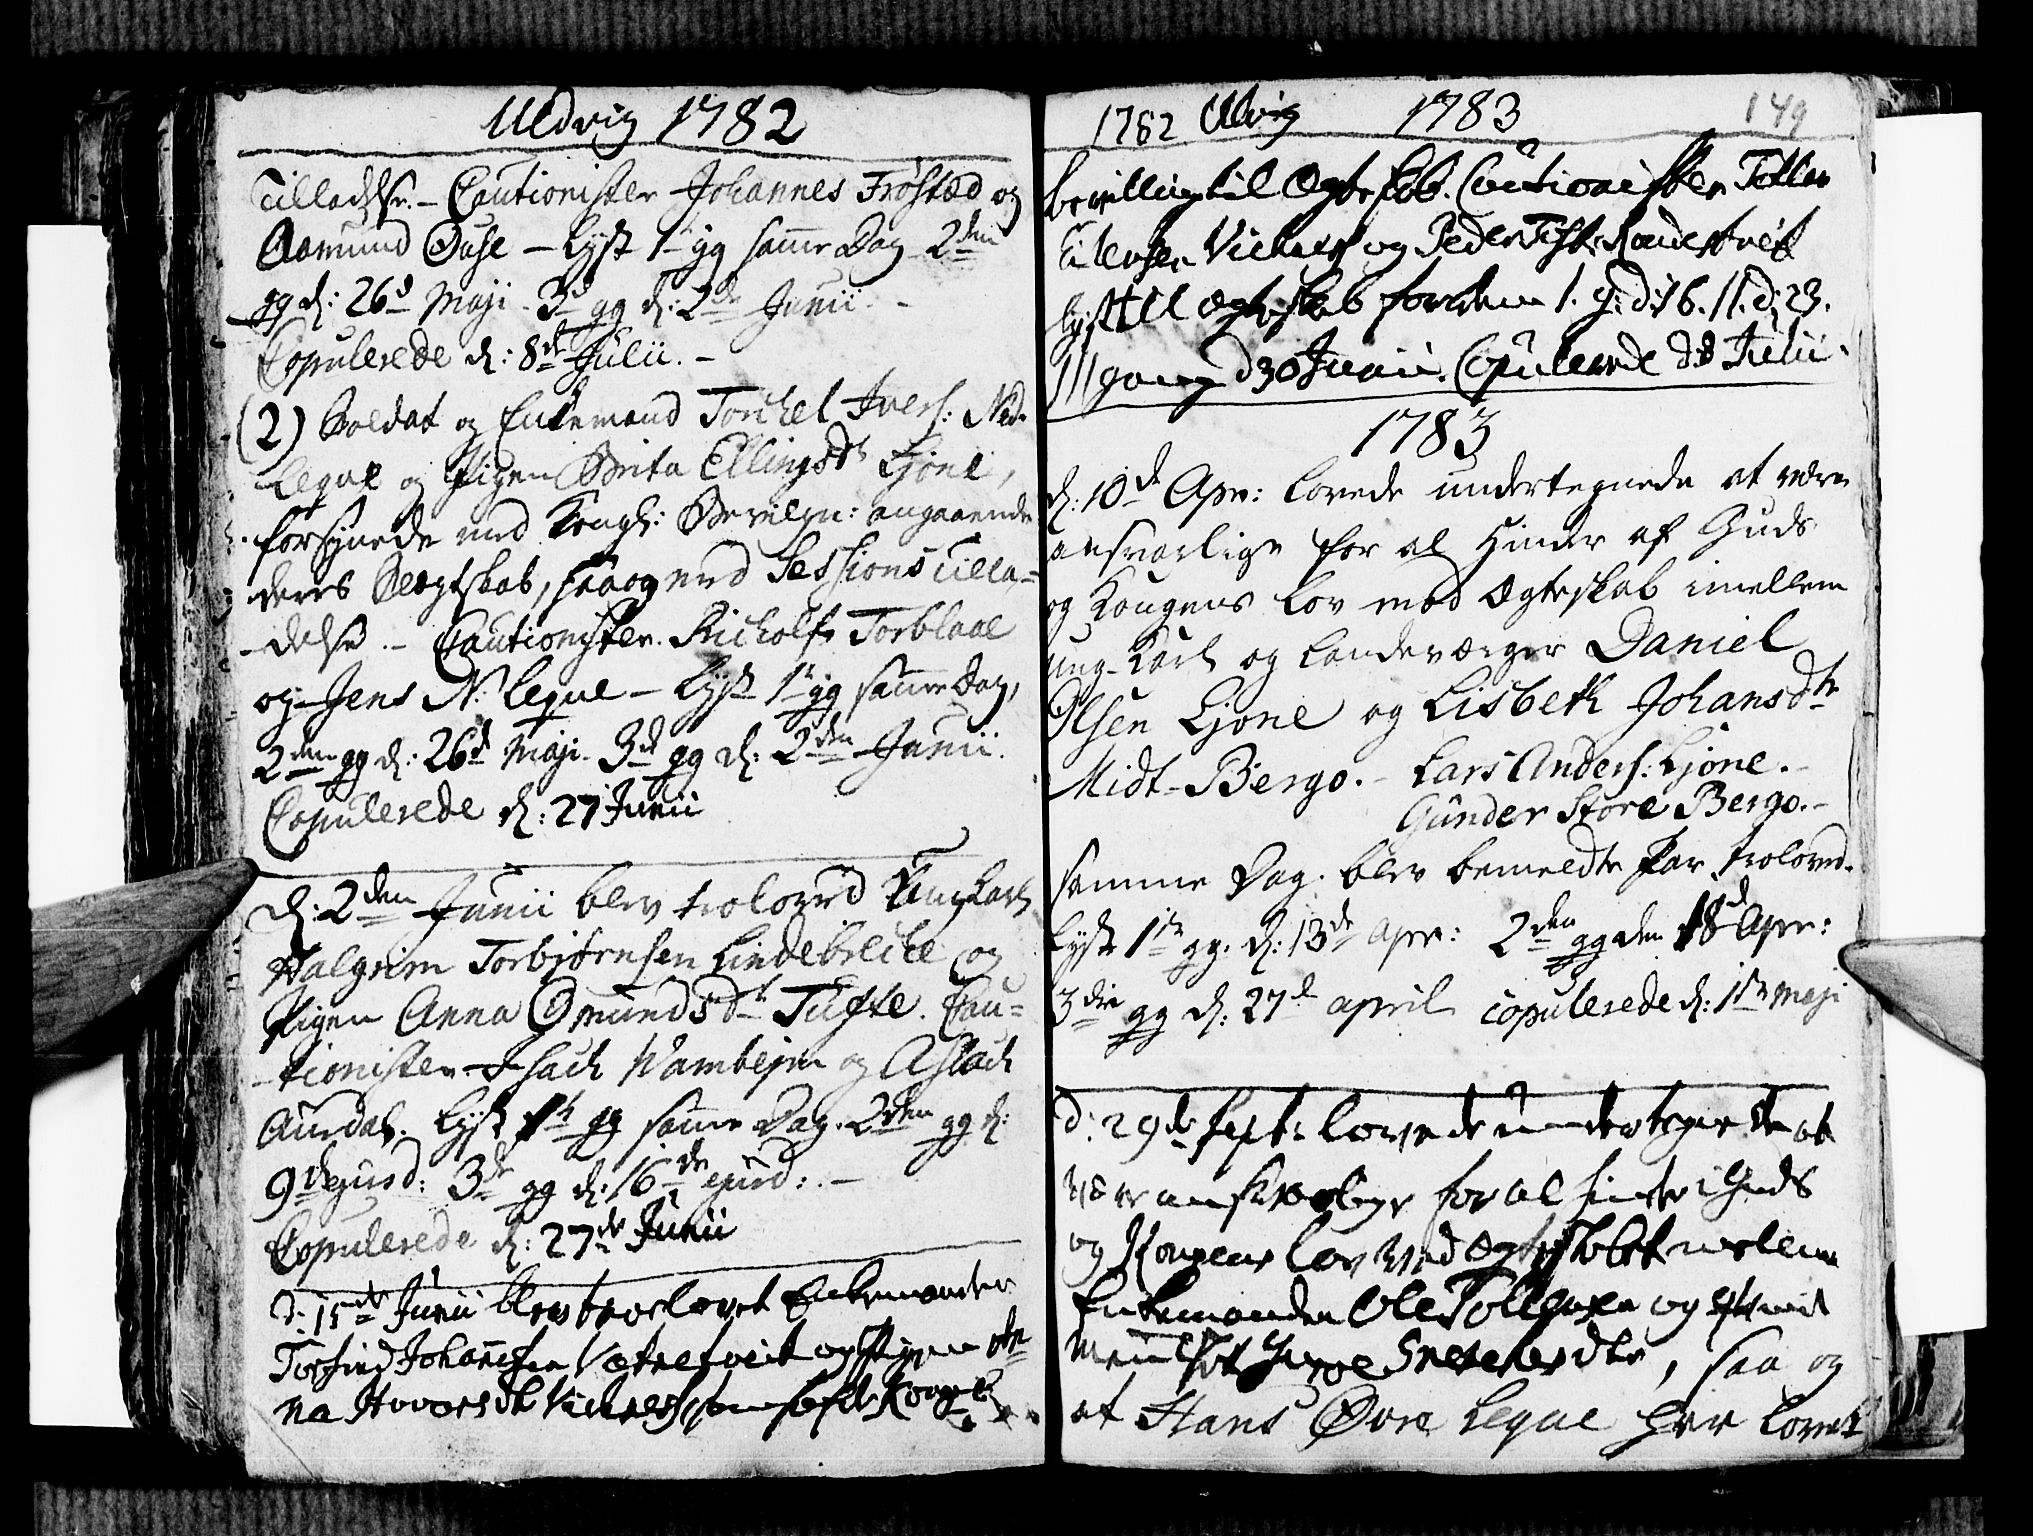 Uldvig 1782
Tilladelse. – Cautionister Johannes Frøstad og
Aamund Ouse – Lyst 1te gg samme Dag 2den
gg d: 26d Maji. 3d gg d: 2de Junii. –
Copulerede d: 8de Julii. –
(2) Soldat og Enkemand Torchel Ivers: Ned-
Leqve og Pigen Brita Ellingsdtr Ljone,
forsynede med Kongl: Bevilgn: angaaende
deres Slegtskab, saa og med Sessions Tilla-
delse. – Cautionister Richolf Torblaae
og Jens N: Leqve – Lyst 1te gg samme Dag,
2den gg d: 26d Maji. 3d gg d: 2den Junii.
Copulerede d: 27 Junii
d: 2den Junii blev trolovd Ung Karl
Halgrim Torbjørnsen Lindebrecke og
Pigen Anna Omundsdtr Tufte. Cau-
tionister Isach Wambejm og Aslach
Aurdal. Lyst 1te gg samme Dag. 2den gg d:
9de ejusd: 3de gg d: 16de ejusd: –
Copulerede d: 27de Junii
d: 15de Junii blev troelovet Enkemanden
Torfind Johannesen Vetrefveit og Pigen An-
na Hvorsdtr Vichnes
1782 Ulvig 1783 149
bevilling til Ægteskab. Cautionister
Eilevsen Vichnes og Peder
lyst til Ægteskab for dem 1. g: d: 16. 11. d: 23.
111 gang d 30 Junii. Copulerede d 8 Julii.
1783
d: 10de Apr: lovede undertegnede at være
ansvarlige for al Hinder af Guds
og Kongens Lov mod Ægteskab imellem
ung Karl og Landeværger Daniel
Olsen Ljone og Lisbeth Johansdtr
Midt-Bergo. – Lars Anders: Ljone. –
Gunder Store Bergo. –
samme Dag. blev bemeldte Par trolovd.
Lyst 1te gg. d: 13de Apr: 2den gg den 18d Apr:
3die gg d: 27d april copulerede d: 1te Maji
d: 29de Sept: lovede undertegnede at
være ansvarlige for al hinder i Guds
og Kongens lov ved Ægteskabet mellem
Enkemanden Ole og
, saa og
at Hans Øvre Leqve har lovet